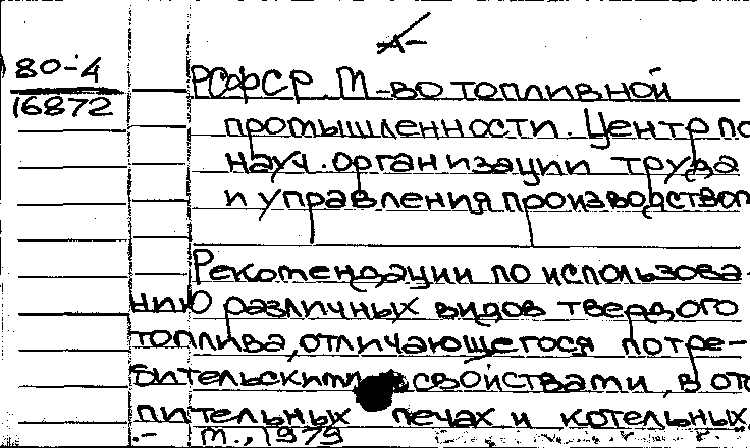 А-
80-4
16872
РСФСР. М-во топливной
промышленности. Центр по
науч. организации труда
и управления производством
Рекомендации по использова-
нию различных видов твердого
топлива, отличающегося потре-
бительскими свойствами, в ото
пительных печах и котельных
.- М., 1979